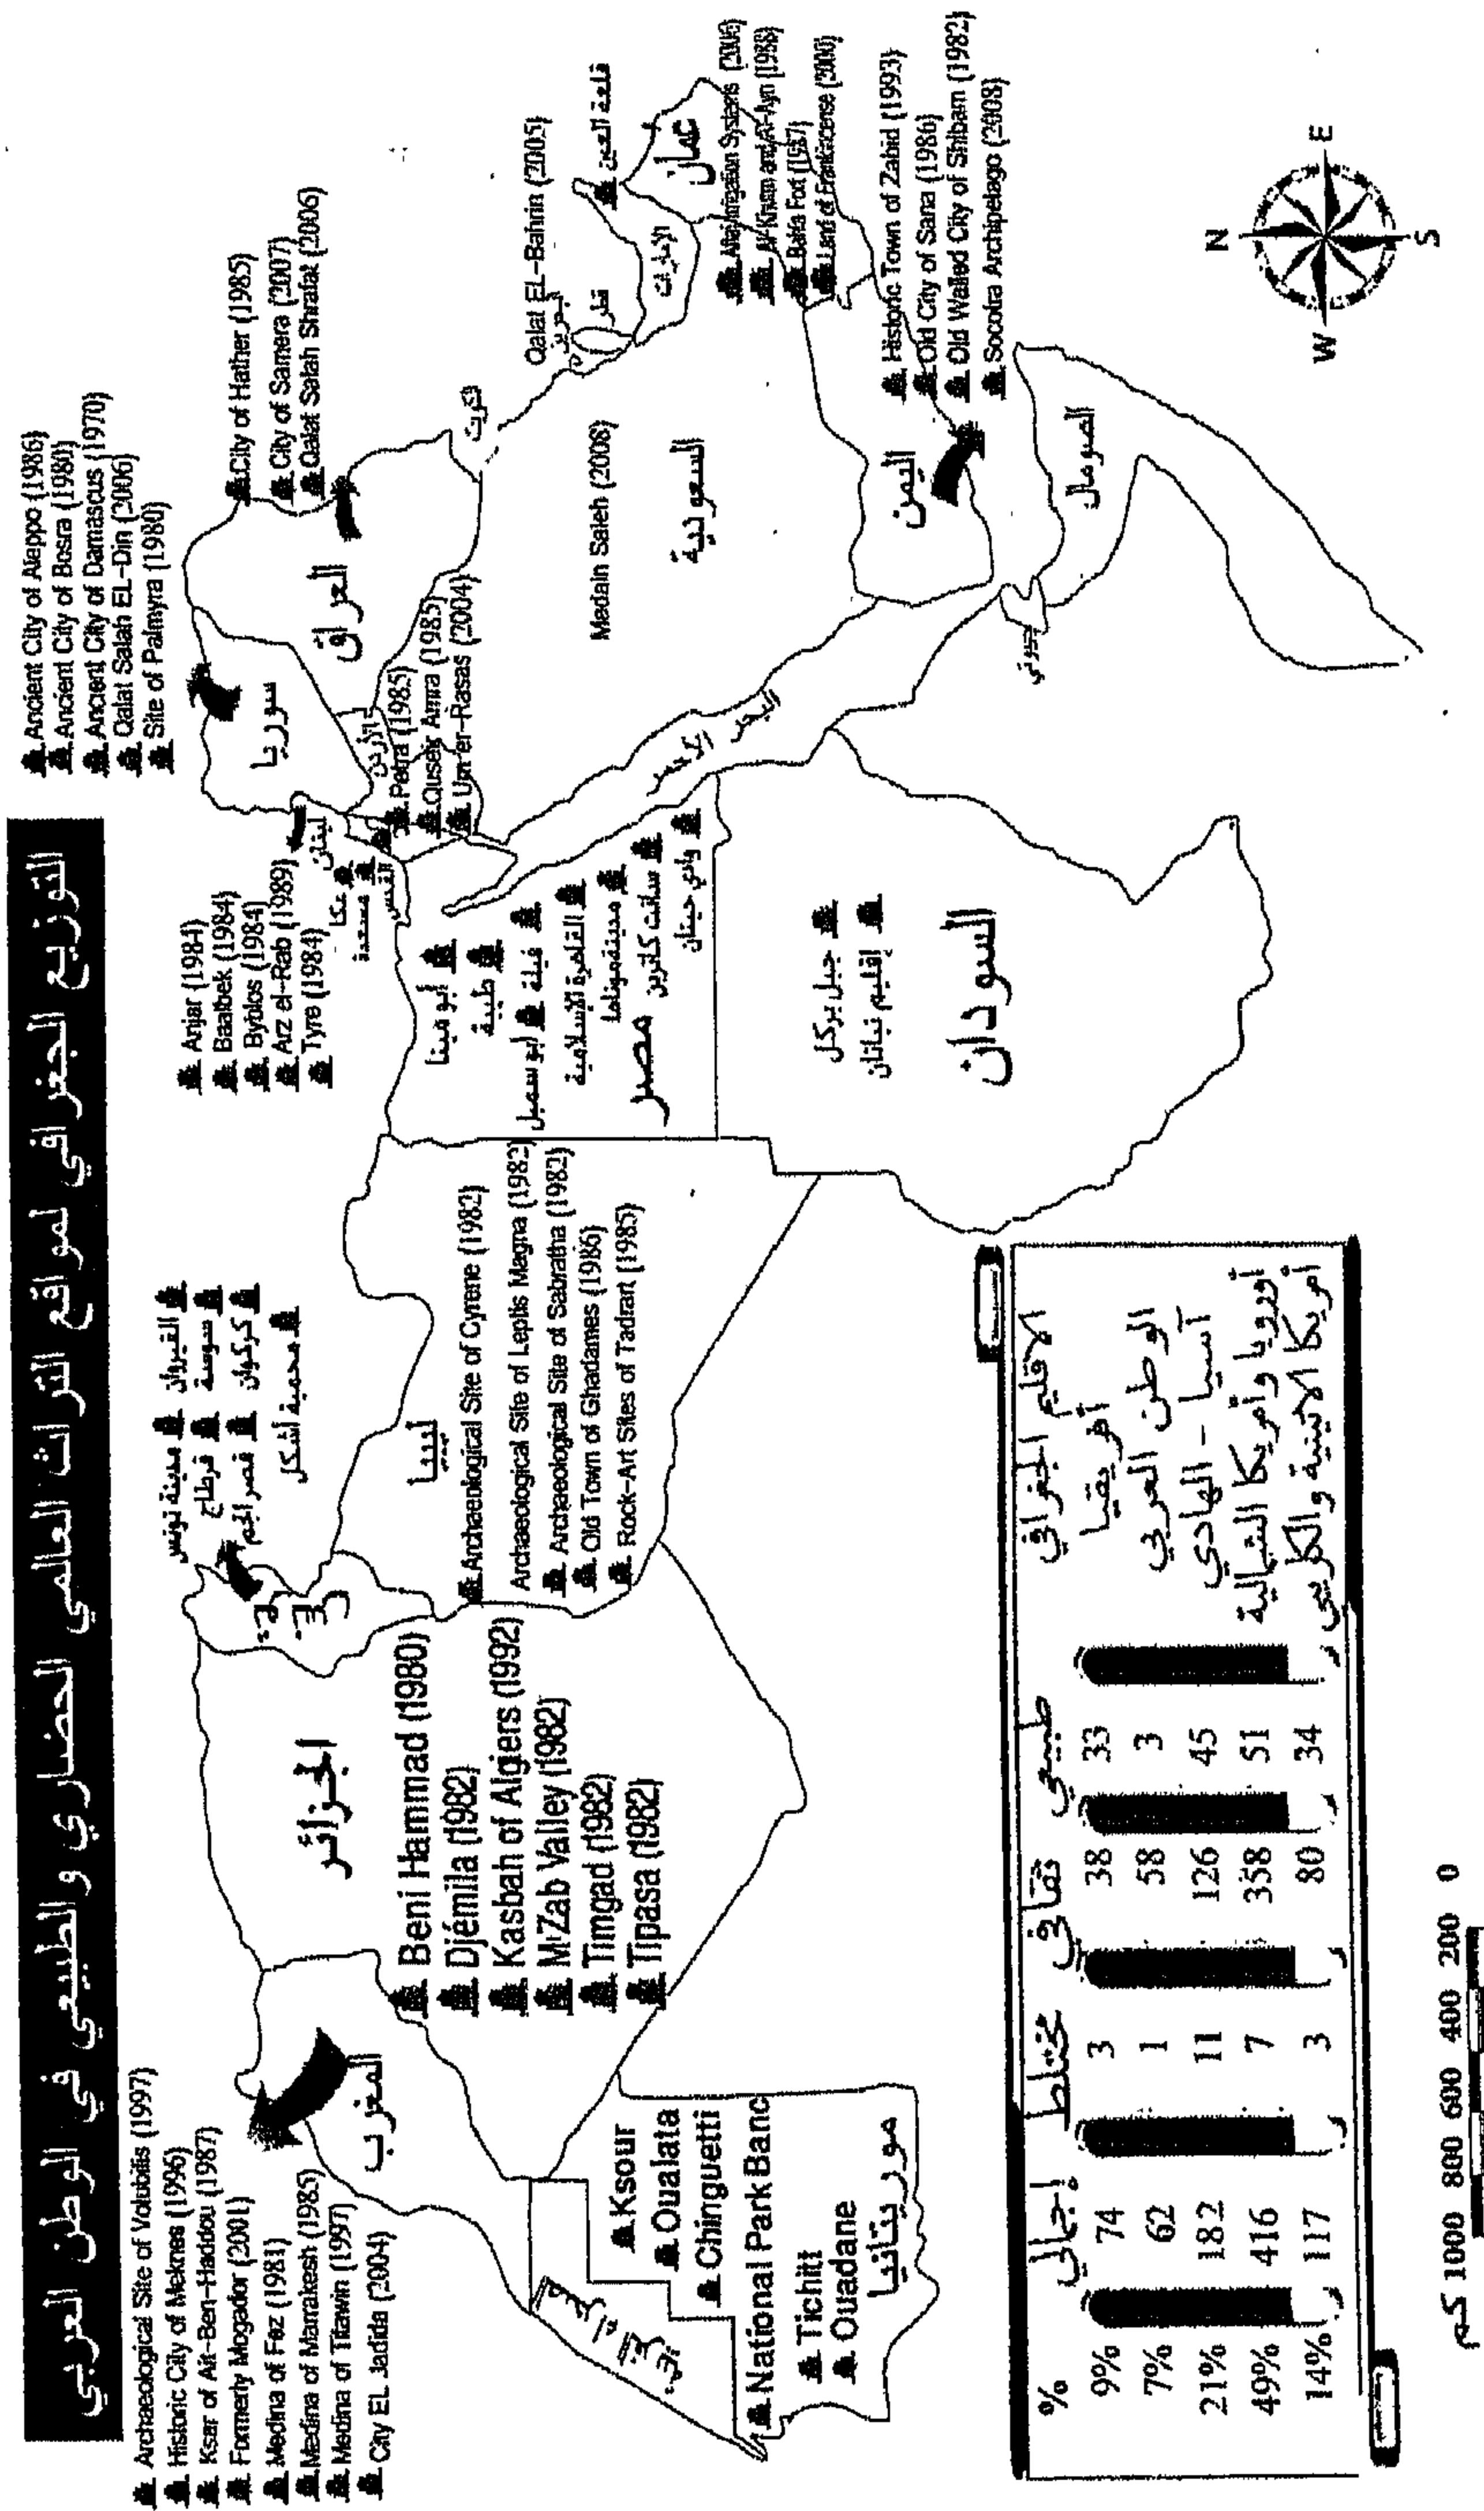 التوزيع الجغرافي لمواقع التراث العالمي الحضاري والطبيعي في الوطن العربي
Archaeological Site of Volubilis (1997)
Historic City of Meknes (1996)
Ksar of Ait-Ben-Haddou (1987)
Formerly Mogador (2001)
Medina of Fez (1981)
Medina of Marrakesh (1985)
Medina of Titawin (1997)
City EL Jadida (2004)
المغرب
Ksour
Oualata
Chinguetti
National Park Banc
Tichitt
Ouadane
موريتانيا
الجزائر
Beni Hammad (1980)
Djémila (1982)
Kasbah of Algiers (1992)
M'Zab Valley (1982)
Timgad (1982)
Tipasa (1982)
تونس
مدينة تونس
القيروان
قرطاج
سوسة
قصر الجم
كركوان
محمية أشكل
ليبيا
Archaeological Site of Cyrene (1982)
Archaeological Site of Leptis Magna (1982)
Archaeological Site of Sabratha (1982)
Old Town of Ghadames (1986)
Rock-Art Sites of Tadrart (1985)
Anjar (1984)
Baalbek (1984)
Byblos (1984)
Arz el-Rab (1989)
Tyre (1984)
لبنان
عكا
مسعدة
القدس
أبو مينا
طيبة
أبو سمبل
فيلة
القاهرة الإسلامية
مدينة موناما
سانت كاترين
وادي حيتان
مصر
جبل بركل
إقليم نباتان
السودان
Ancient City of Aleppo (1986)
Ancient City of Bosra (1980)
Ancient City of Damascus (1970)
Qalat Salah EL-Din (2006)
Site of Palmyra (1980)
سوريا
الأردن
Petra (1985)
Quseir Amra (1985)
Um er-Rasas (2004)
العراق
City of Hather (1985)
City of Samera (2007)
Qalat Salah Shrafat (2006)
Medain Saleh (2008)
السعودية
Qalat EL-Bahrin (2005)
بحرين
قطر
الإمارات
قلعة العين
عمان
Aflaj Irrigation Systems (2006)
Al-Khutm and Al-Ayn (1988)
Bahla Fort (1987)
Land of Frankincense (2000)
اليمن
Historic Town of Zabid (1993)
Old City of Sana (1986)
Old Walled City of Shibam (1982)
Socotra Archipelago (2008)
جيبوتي
الصومال
N
E
S
W
الاقليم الجغرافي طبيعي ثقافي مختلط إجمالي %
أفريقيا 33 38 3 74 9%
الوطن العربي 3 58 1 62 7%
آسيا - الهادي 45 126 11 182 21%
أوروبا وأمريكا الشمالية 51 358 7 416 49%
أمريكا الاتينية والكاريبي 34 80 3 117 14%
كم 1000 800 600 400 200 0